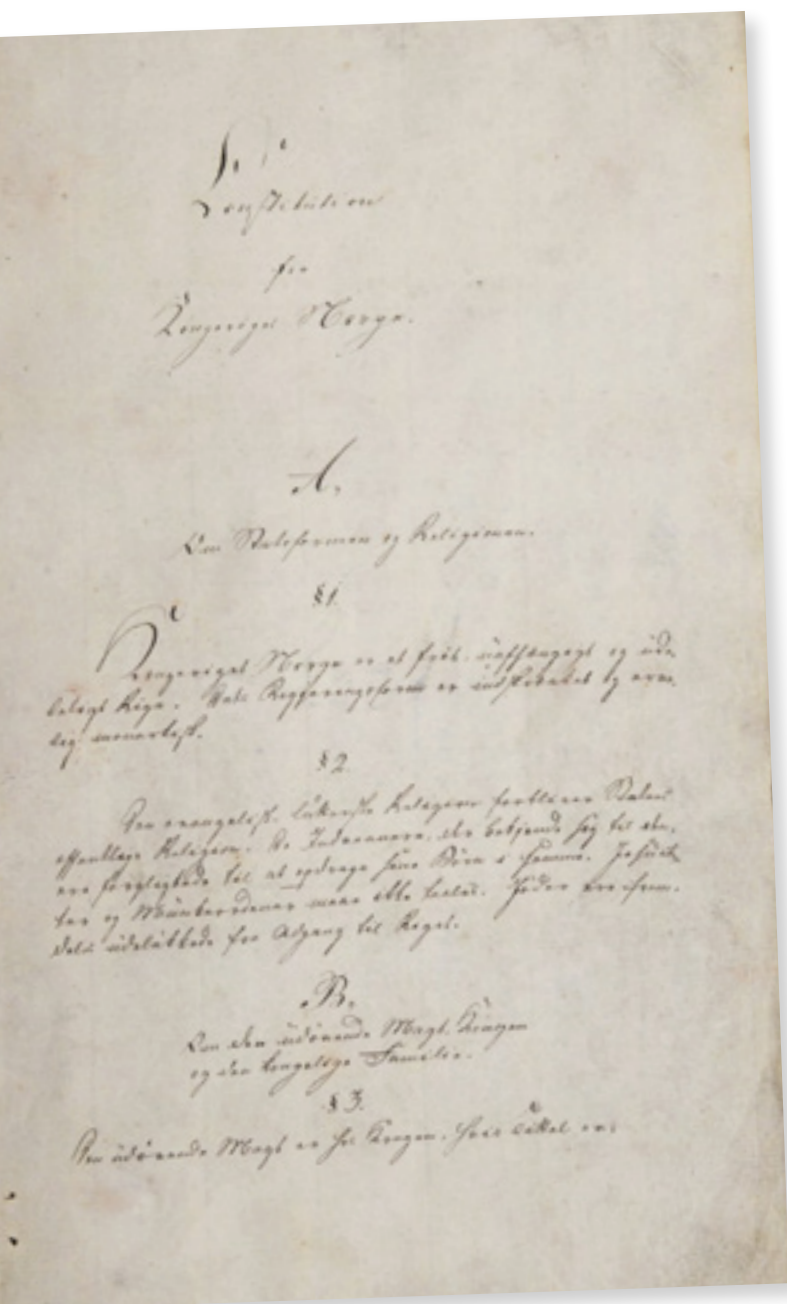 Constitution
for
Kongeriget Norge.
A.
Om Statsformen og Religionen.
§ 1.
Kongeriget Norge er et frit, uafhængigt og ude-
leligt Rige. Dets Regjeringsform er indskrænket og arve-
lig monarkisk.
§ 2.
Den evangelisk-lutherske Religion forbliver Statens
offentlige Religion. De Indvaanere, der bekjende sig til den,
ere forpligtede til at opdrage sine Børn i samme. Jesuit-
ter og Munkeordener maae ikke taales. Jøder ere frem-
deles udelukkede fra Adgang til Riget.
B.
Om den udøvende Magt, Kongen
og den kongelige Familie.
§ 3.
Den udøvende Magt er hos Kongen, hvis Tittel er: